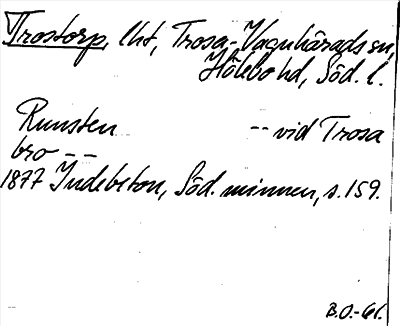 Trostorp, lht, Trosa-Vagnhärads sn,
Hölebo hd, Söd. l.
Runsten -- vid Trosa
bro --
1877 Indebetou, Söd. minnen, s. 159.
B.O.-61.